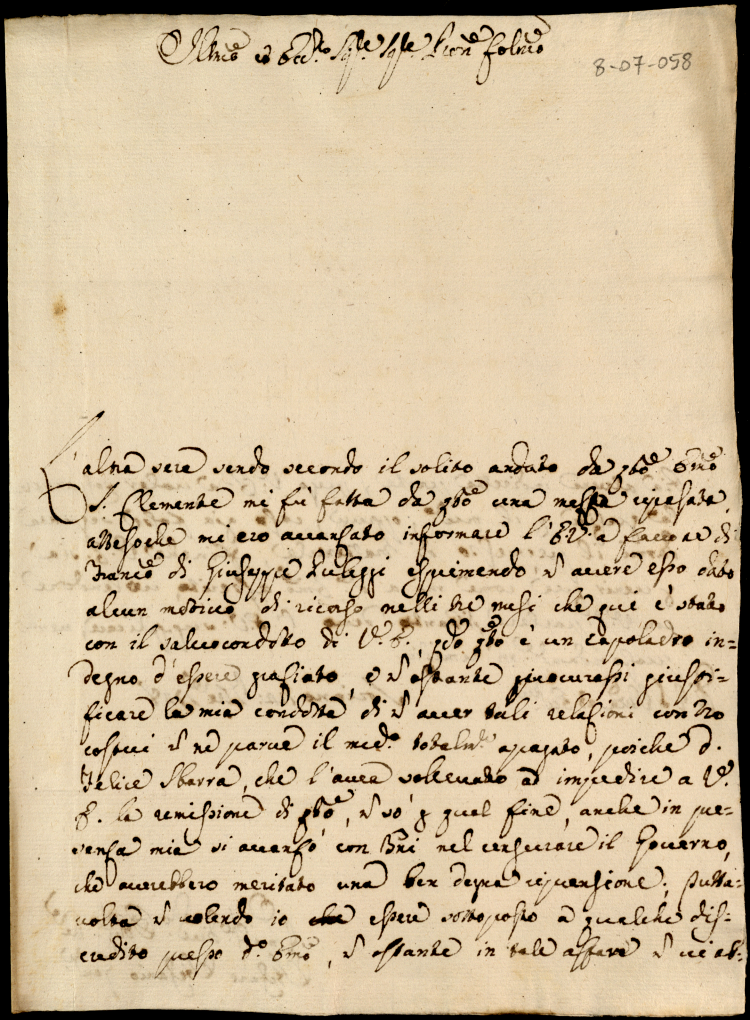 Illmo et Ecc.mo Sig.re Sig.re Pron Colmo
8-07-058
L'altra sera sendo secondo il solito andato da qsto Emo
S. Clemente mi fù fatta da qsto una mezza ripasata,
attesoche mi ero avansato informare l'E.V. a favore di
Franco di Giuseppe esprimendo ñ avere esso dato
alcun motivo di ricorso nelli tre mesi che qui è stato
con il salvocondotto di V.E., qdo qsto è un capoladro in=
degno d'essere grasiato, e ñ ostante procurassi giusti=
ficare la mia condotta di ñ aver tali relasioni contro
costui ñ ne parve il med.o totalm.te apagato, poiche d.
Felice Sbarra, che l'avea sollevato ad impedire a V.
E. la remissione di qsto, ñ so p qual fine, anche in pre=
sensa mia si avansò con Bni nel censurare il Governo,
che averebbero meritato una ben degna riprensione; tutta=
volta ñ volendo io essere sottoposto a qualche dis=
credito presso d.o Emo, ñ ostante in tale affare ñ vi ab=